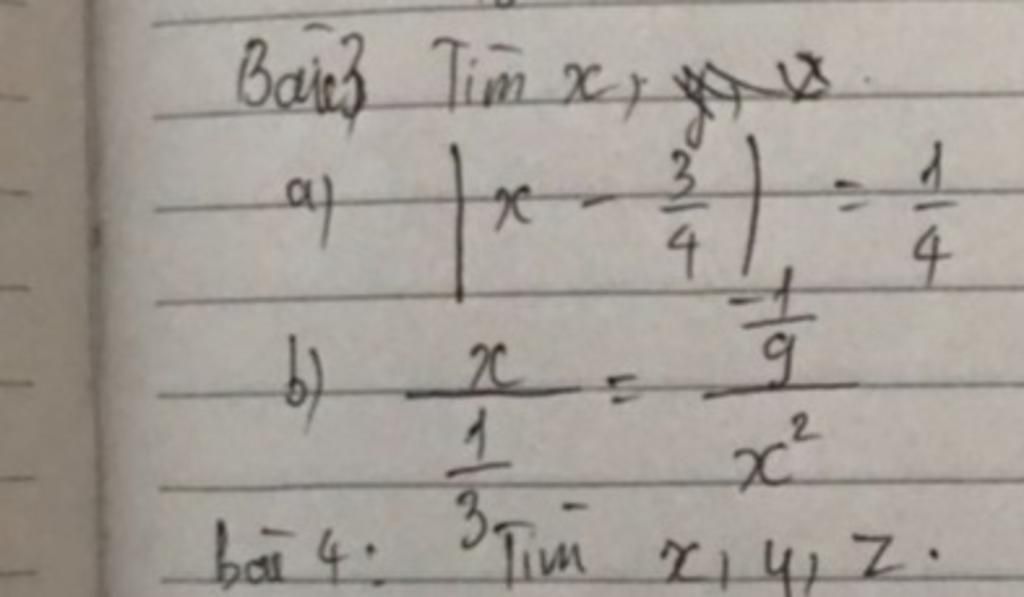 Bài 3 Tìm x,
a) | x - 3/4 | = 1/4
b) x / (1/3) = (-1/9) / x²
bài 4: Tìm x, y, z.